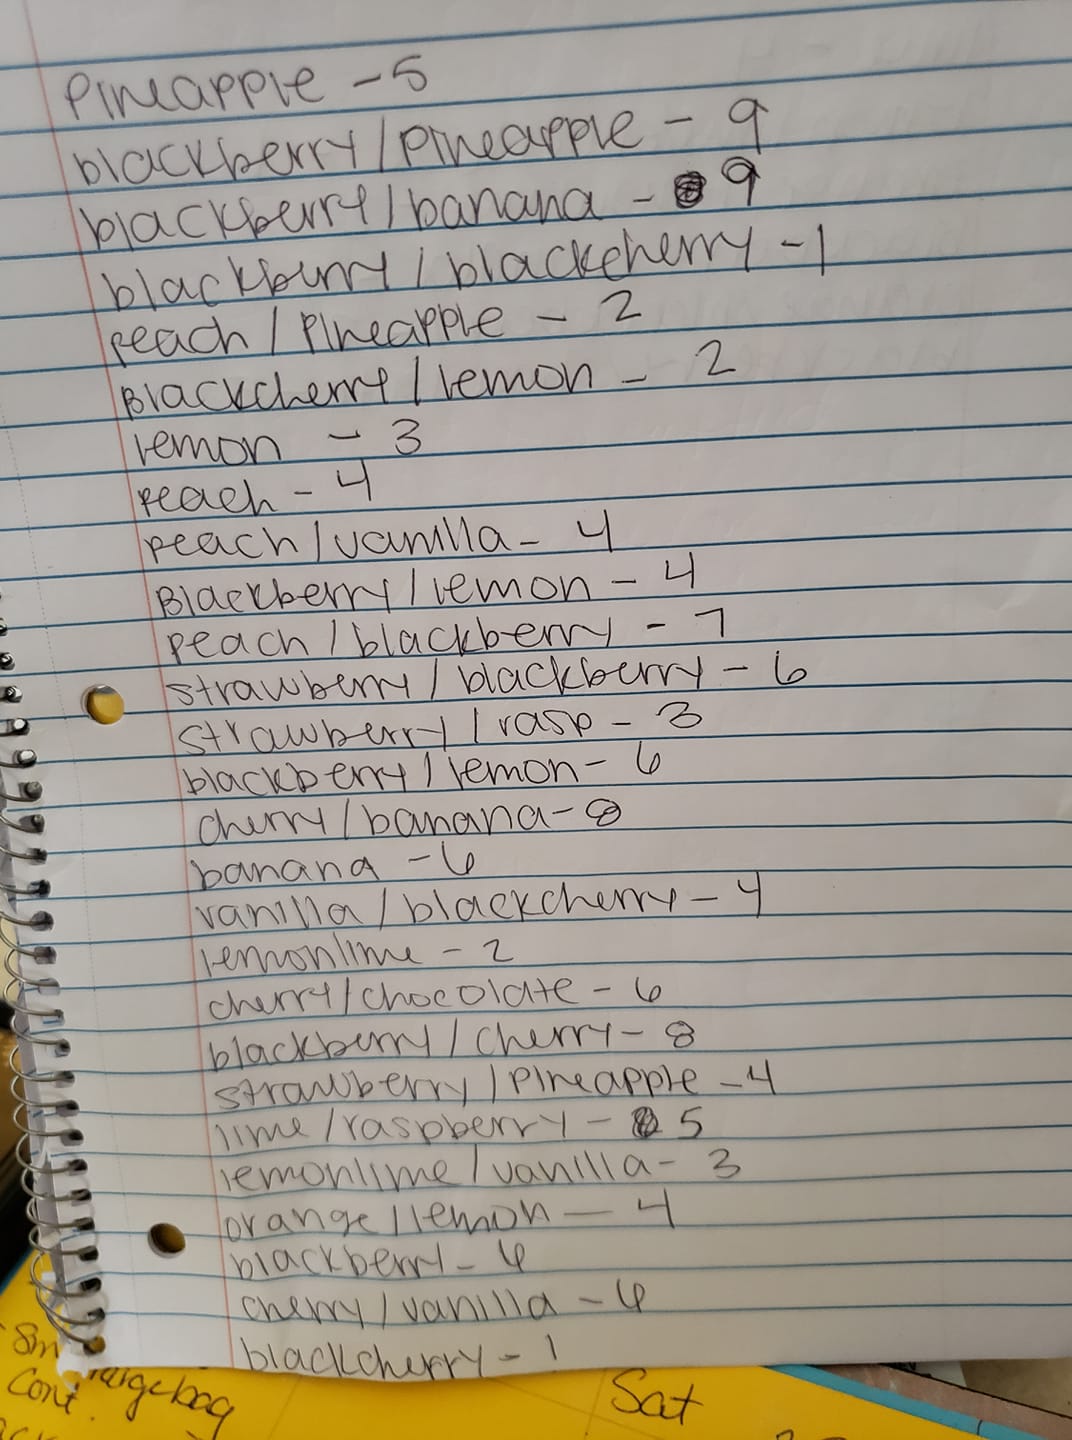 Pineapple - 5
blackberry/Pineapple - 9
blackberry/banana - 9
blackburry/blackcherry - 1
peach/Pineapple - 2
Blackcherry/lemon - 2
lemon - 3
peach - 4
peach/vanilla - 4
Blackberry/lemon - 4
peach/blackberry - 7
strawberry/blackberry - 6
strawberry/rasp - 3
blackberry/lemon - 6
cherry/banana - 8
banana - 6
vanilla/blackcherry - 4
lemonlime - 2
cherry/chocolate - 6
blackberry/cherry - 8
strawberry/Pineapple - 4
lime/raspberry - 5
lemonlime/vanilla - 3
orange/lemon - 4
blackberry -
cherry/vanilla -
blackcherry - 1
Sm largebag
Cont. Sat